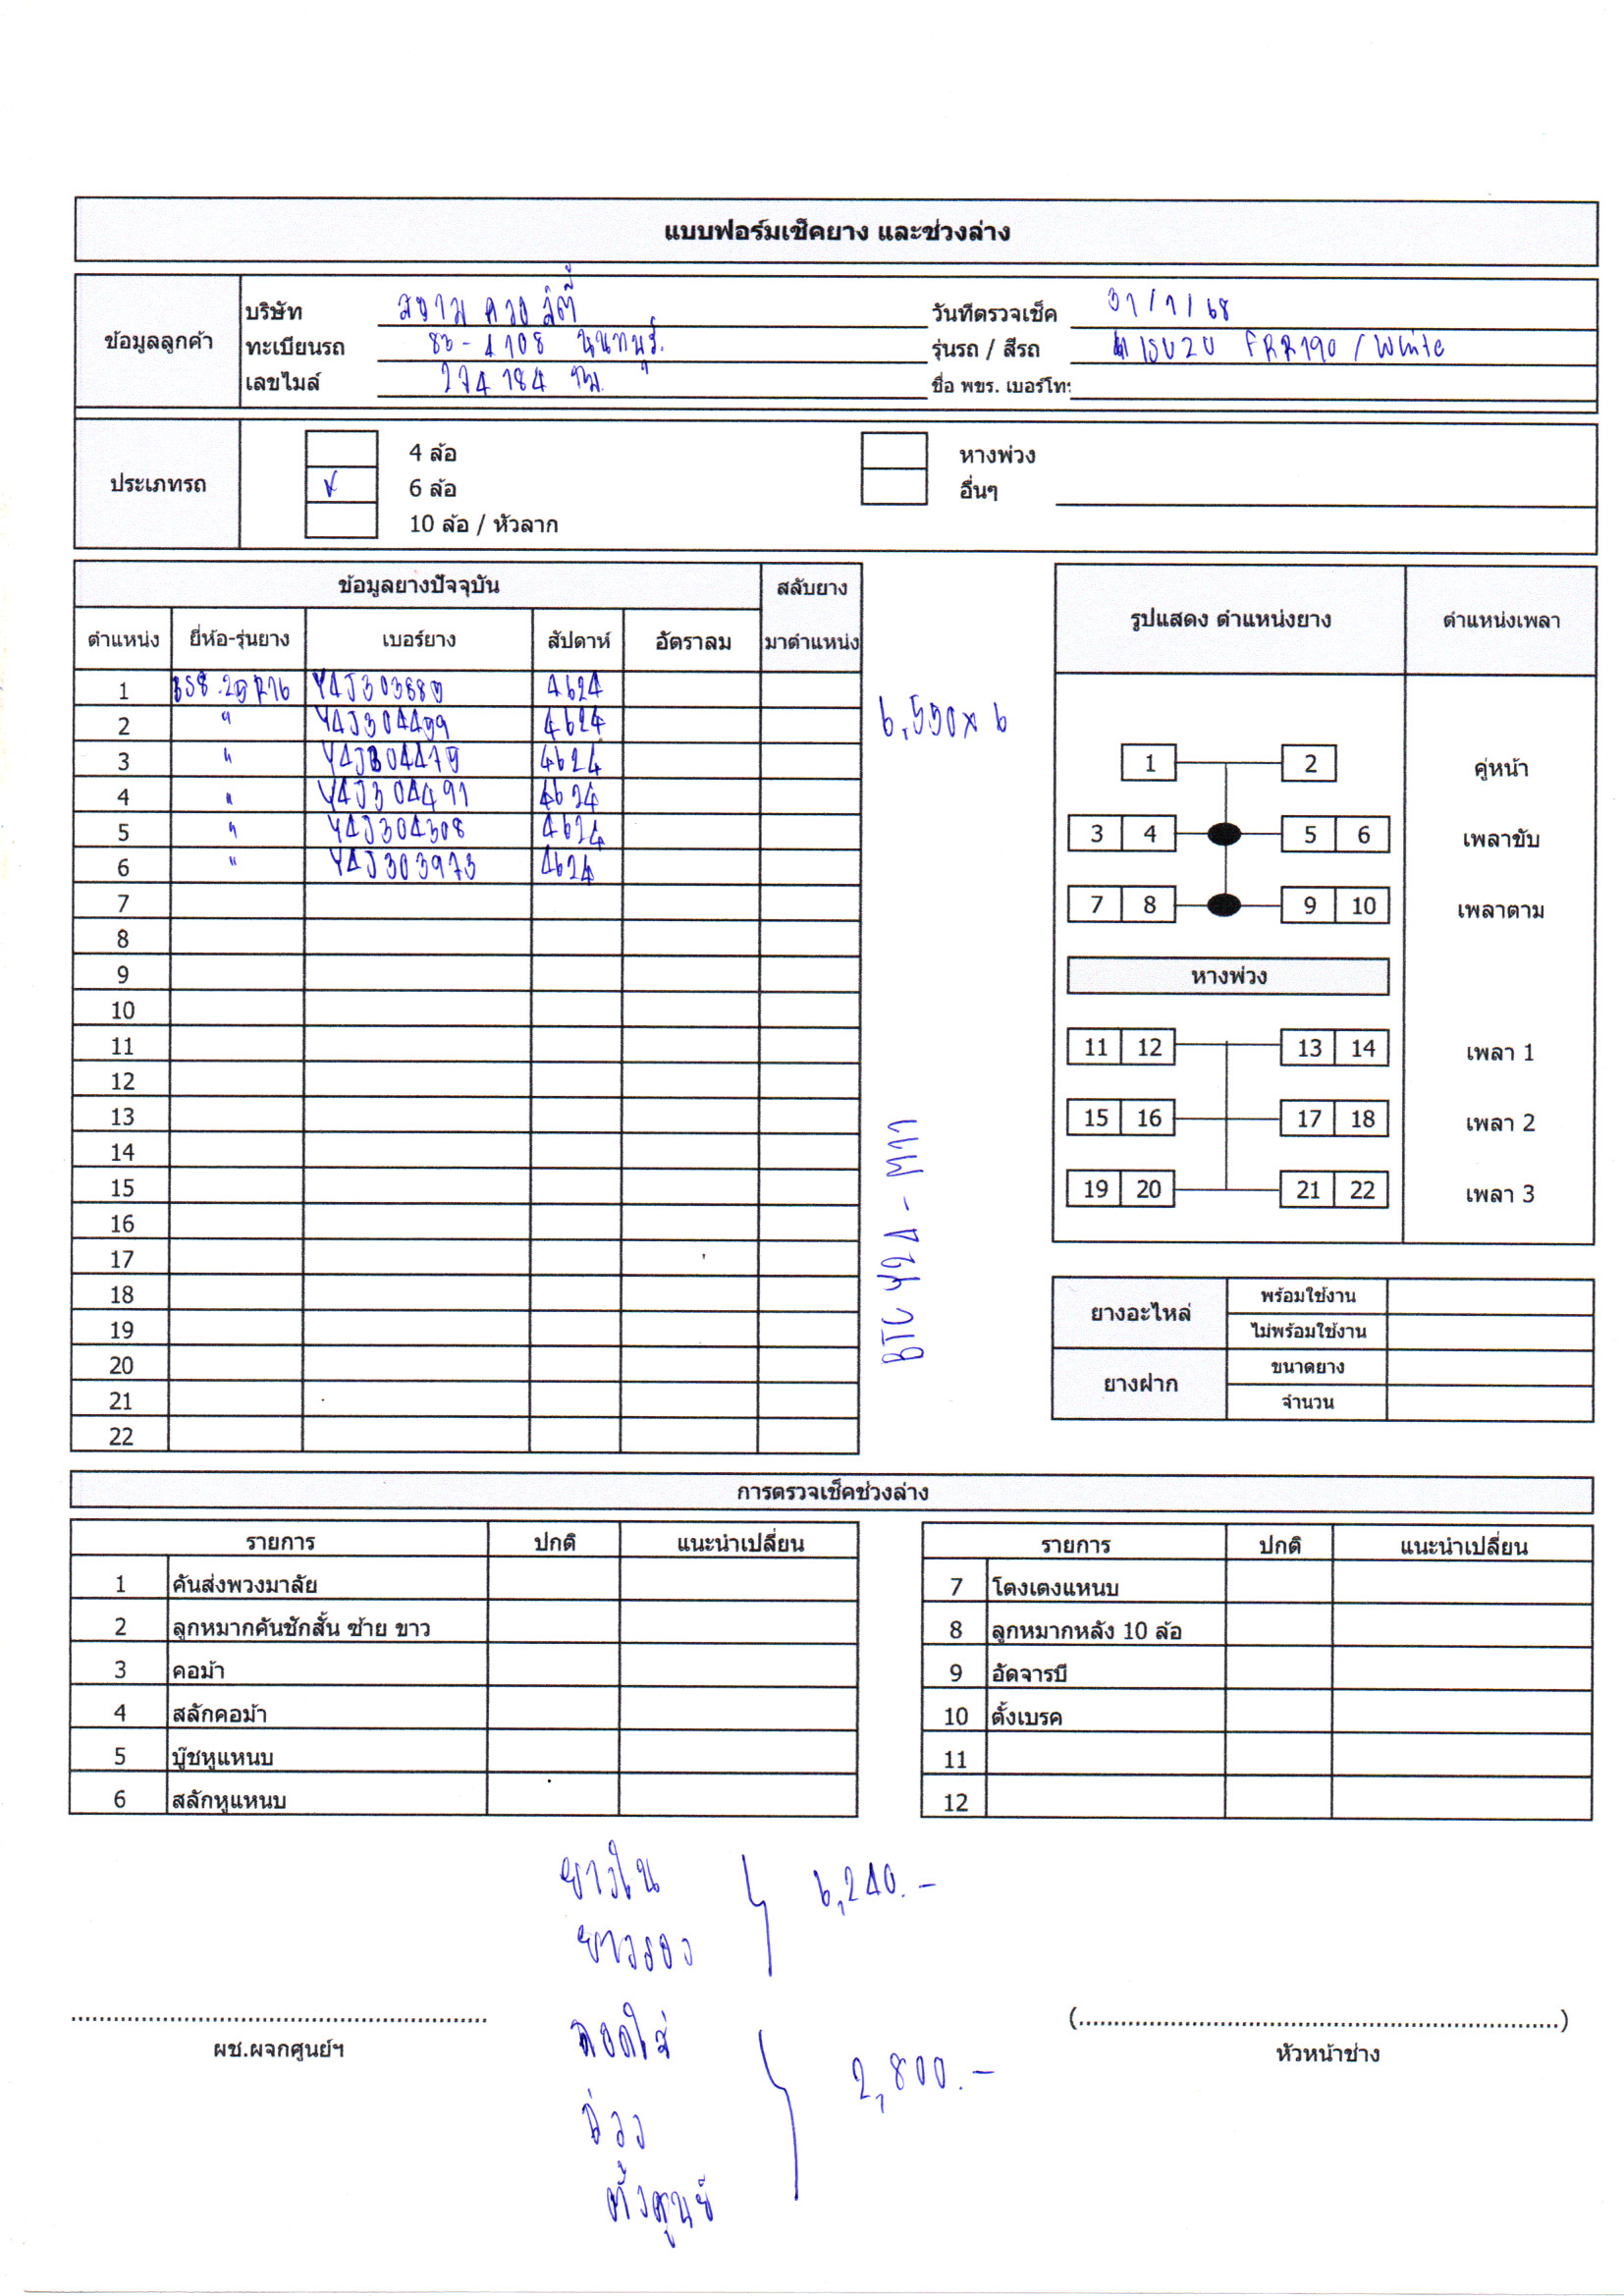 แบบฟอร์มเช็คยาง และช่วงล่าง
ข้อมูลลูกค้า
บริษัท สยาม ควอลิตี้ วันที่ตรวจเช็ค 31/1/68
ทะเบียนรถ 83-4108 นนทบุรี รุ่นรถ / สีรถ ISUZU FRR190 / White
เลขไมล์ 274184 กม. ชื่อ พขร. เบอร์โทร
ประเภทรถ
4 ล้อ หางพ่วง
6 ล้อ อื่นๆ
10 ล้อ / หัวลาก
ข้อมูลยางปัจจุบัน สลับยาง
ตำแหน่ง ยี่ห้อ-รุ่นยาง เบอร์ยาง สัปดาห์ อัตราลม มาตำแหน่ง
1 BS8.25R16 Y4J303883 4624
2 " Y4J304439 4624
3 " Y4J304479 4624
4 " Y4J304491 4624
5 " Y4J304308 4624
6 " Y4J303973 4624
7
8
9
10
11
12
13
14
15
16
17
18
19
20
21
22
6,550 x 6
BTC 424 - M11
รูปแสดง ตำแหน่งยาง ตำแหน่งเพลา
1 2 คู่หน้า
3 4 5 6 เพลาขับ
7 8 9 10 เพลาตาม
หางพ่วง
11 12 13 14 เพลา 1
15 16 17 18 เพลา 2
19 20 21 22 เพลา 3
ยางอะไหล่ พร้อมใช้งาน
ไม่พร้อมใช้งาน
ยางฝาก ขนาดยาง
จำนวน
การตรวจเช็คช่วงล่าง
รายการ ปกติ แนะนำเปลี่ยน
1 คันส่งพวงมาลัย
2 ลูกหมากคันชักสั้น ซ้าย ขาว
3 คอม้า
4 สลักคอม้า
5 บู๊ชหูแหนบ
6 สลักหูแหนบ
รายการ ปกติ แนะนำเปลี่ยน
7 โตงเตงแหนบ
8 ลูกหมากหลัง 10 ล้อ
9 อัดจารบี
10 ตั้งเบรค
11
12
ยางใน
ยางรอง
6,240.-
ถอดใส่
ถ่วง
ตั้งศูนย์
2,800.-
ผช.ผจกศูนย์ฯ
(......................................................................)
หัวหน้าช่าง